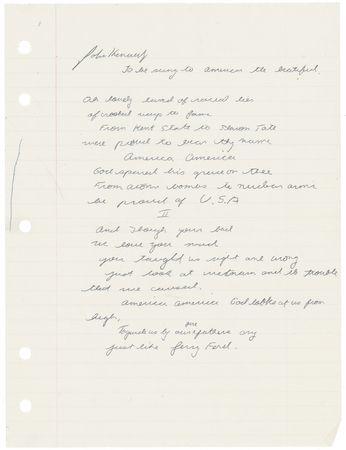 To be sung to america the beautiful.
Oh lovely land of racial lies
of crooked ways to fame
From Kent State to Sharon Tate
were proud to bear thy name
America America
God spared his grace on thee
From atom bombs to nuclear arms
be proud of U.S.A
II
And though your bad
we love you much
you taught us right and wrong
just look at vietnam and its trouble
that we caused.
America america God looks at us from
high,
us by our fathers
one
just like Jerry Ford.